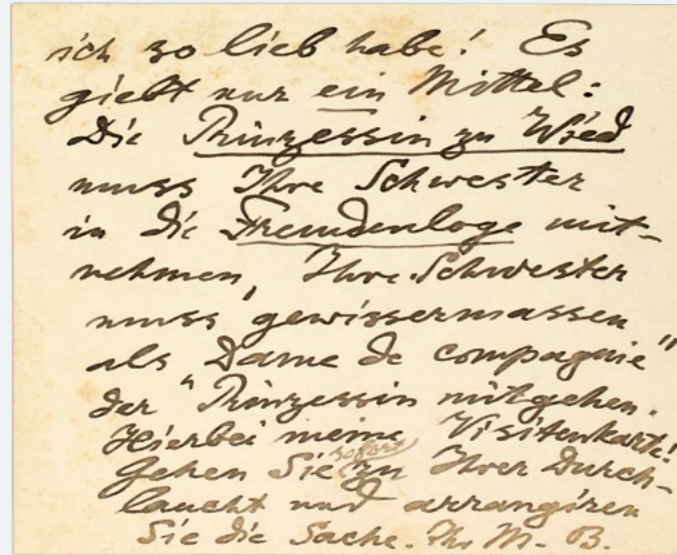 ich so lieb habe! Es
giebt nur ein Mittel:
Die Prinzessin zu Wied
muss Ihre Schwester
in die Fremdenloge mit-
nehmen, Ihre Schwester
muss gewissermassen
als "Dame de compagnie"
der Prinzessin mitgehen.
Hierbei meine Visitenkarte!
Gehen Sie sofort zu Ihrer Durch-
laucht und arrangiren
Sie die Sache. Ihr M. B.